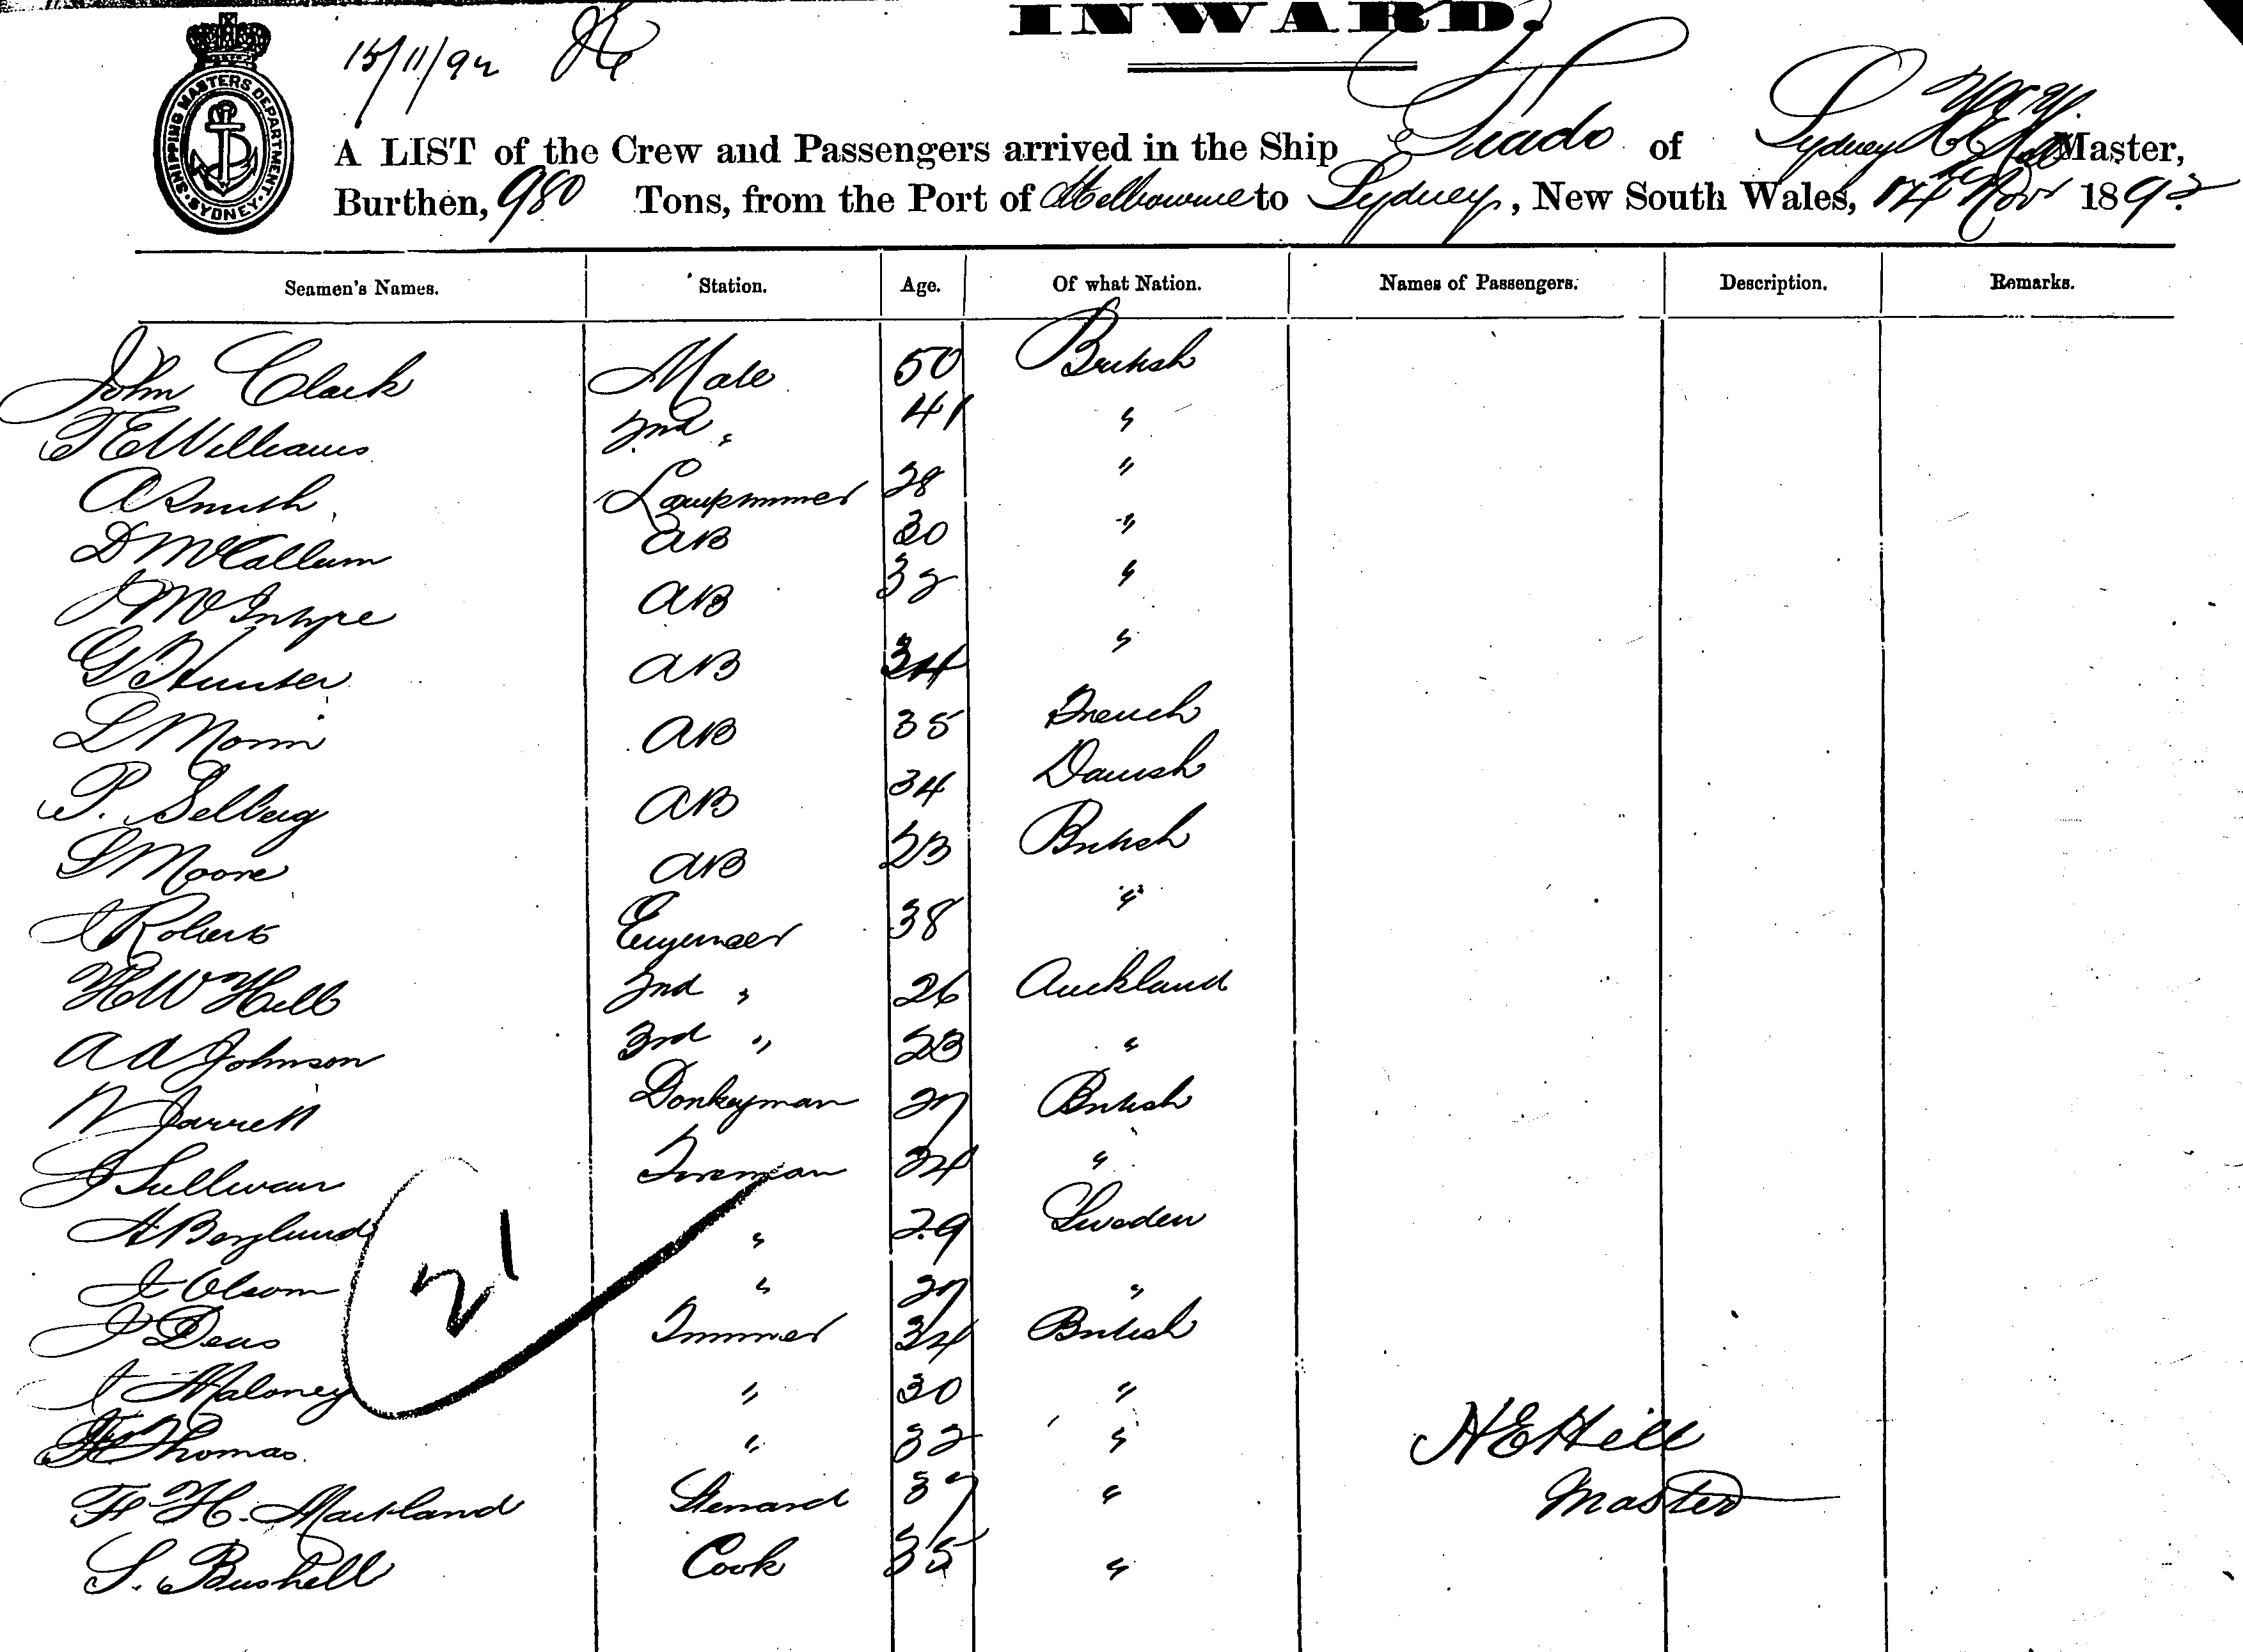 INWARD.
15/11/92
SHIPPING MASTERS DEPARTMENT. SYDNEY.
A LIST of the Crew and Passengers arrived in the Ship of Sydney Master,
Burthen, 980 Tons, from the Port of Melbourne to Sydney, New South Wales, 14 Nov 1892
Seamen's Names. Station. Age. Of what Nation. Names of Passengers. Description. Remarks.
John Clark Mate 50 British
T E Williams 2nd " 41 "
A Smith Lamptrimmer 28 "
D McCallum AB 30 "
J McIntyre AB 32 "
G Hunter AB 34 "
L Morin AB 35 French
P. Selberg AB 34 Danish
S Moore AB 23 British
J Roberts Engineer 38 "
H W Hill 2nd " 26 Auckland
A A Johnson 3rd " 23 "
W Jarrett Donkeyman 27 British
J Sullivan Fireman 24 "
A Berglund " 29 Sweden
J Olsom " 27 "
J Deas Trimmer 34 British
J Maloney " 30 "
Thomas " 32 "
F H. Maitland Steward 37 "
S. Bushell Cook 35 "
21
H E Hill
Master